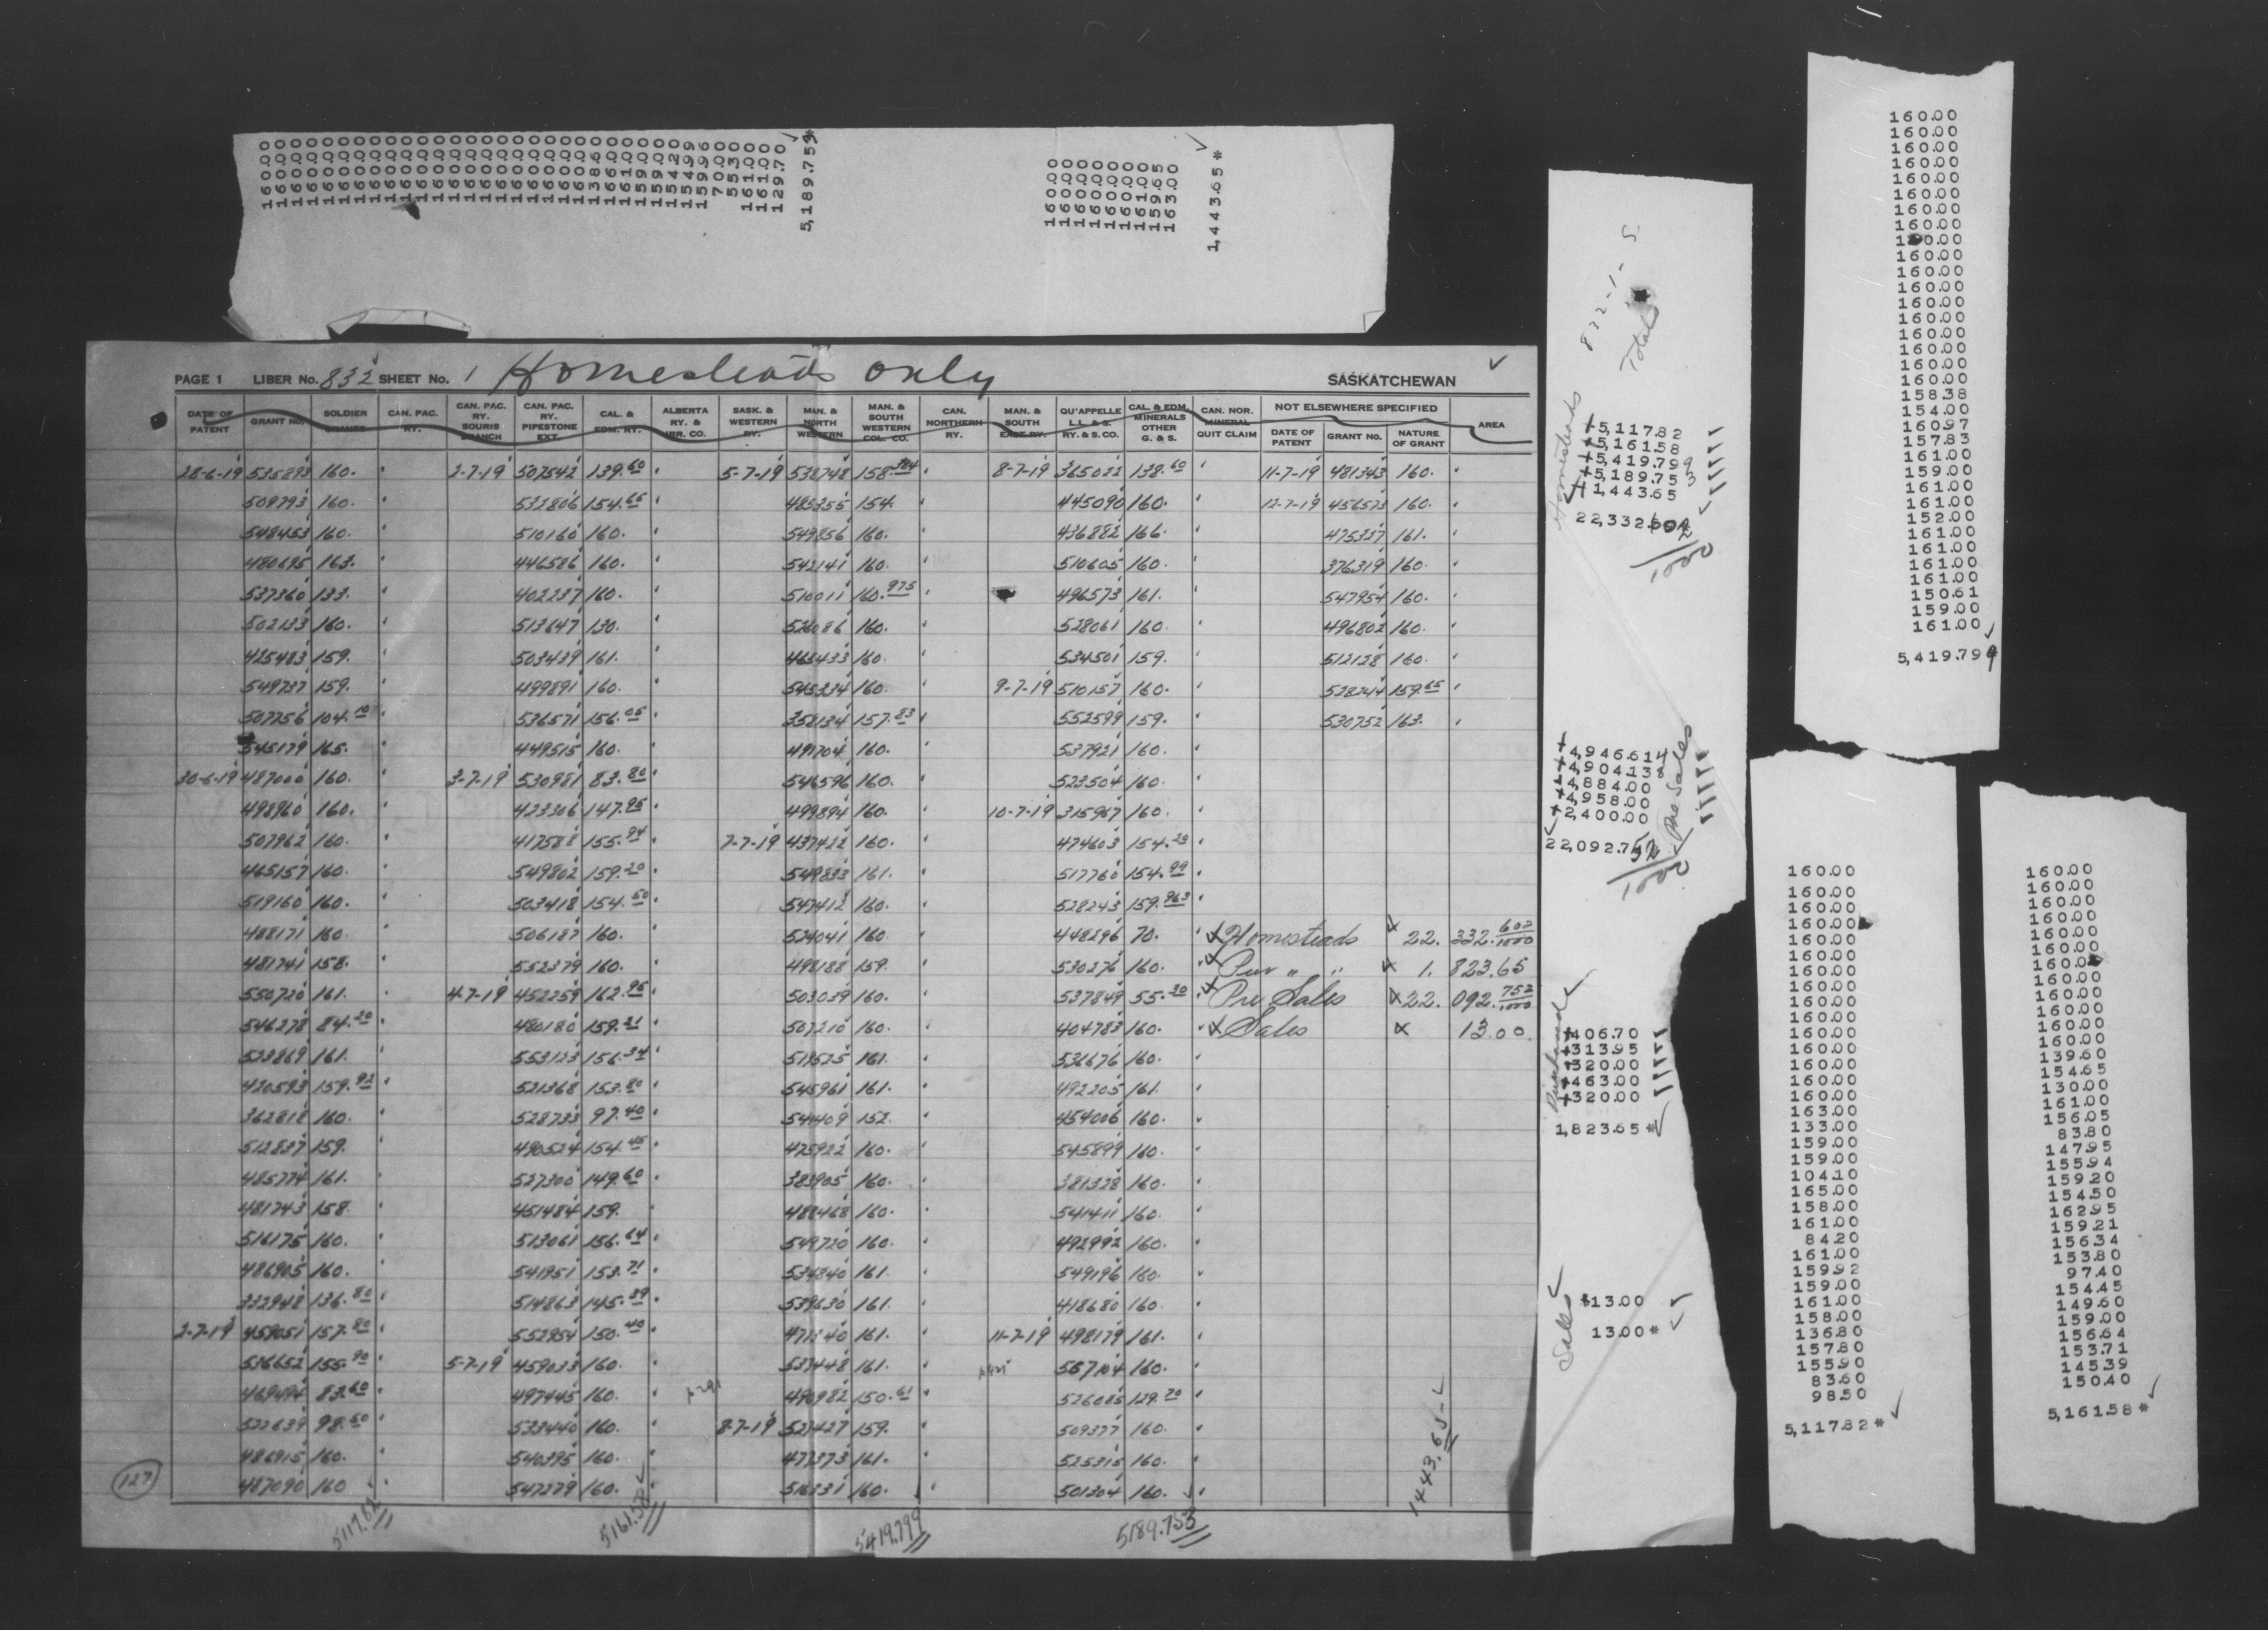 160.00
160.00
160.00
160.00
160.00
160.00
160.00
160.00
160.00
160.00
160.00
160.00
160.00
160.00
160.00
160.00
160.00
160.00
160.00
160.00
160.00
138.60
166.00
161.00
159.00
159.00
154.20
154.99
159.96
70.00
55.30
161.00
161.00
129.70
5,189.753*
160.00
160.00
160.00
160.00
160.00
160.00
161.00
159.65
163.00
1,443.65*
PAGE 1 LIBER No. 832 SHEET No. 1 Homesteads only SASKATCHEWAN
DATE OF PATENT GRANT NO. SOLDIER GRANTS CAN. PAC. RY. CAN. PAC. RY. SOURIS BRANCH CAN. PAC. RY. PIPESTONE EXT. CAL. & EDM. RY. ALBERTA RY. & IRR. CO. SASK. & WESTERN RY. MAN. & NORTH WESTERN MAN. & SOUTH WESTERN COL. CO. CAN. NORTHERN RY. MAN. & SOUTH EAST. RY. QU'APPELLE L.L. & S. RY. & S. CO. CAL. & EDM. MINERALS OTHER G. & S. CAN. NOR. MINERAL QUIT CLAIM NOT ELSEWHERE SPECIFIED DATE OF PATENT GRANT NO. NATURE OF GRANT AREA
28-6-19 535893 160. 2-7-19 507542 139.60 5-7-19 532748 158.384 8-7-19 365022 138.60 11-7-19 481343 160.
509793 160. 532806 154.65 485255 154. 445090 160. 12-7-19 456523 160.
548453 160. 510160 160. 549856 160. 436882 166. 475337 161.
480695 163. 446586 160. 542141 160. 510605 160. 376319 160.
537360 133. 402237 160. 510011 160.975 496573 161. 547954 160.
502133 160. 513647 130. 526086 160. 528061 160. 496802 160.
425483 159. 503439 161. 465433 160. 534501 159. 512128 160.
549737 159. 499891 160. 545234 160. 9-7-19 510157 160. 528244 159.65
507256 104.10 536571 156.05 352134 157.83 552599 159. 530752 163.
545179 165. 449515 160. 491704 160. 537921 160.
30-6-19 487000 160. 3-7-19 530981 83.80 546596 160. 523504 160.
498960 160. 423306 147.95 499894 160. 10-7-19 315967 160.
507962 160. 417588 155.94 7-7-19 437422 160. 474603 154.20
465157 160. 549802 159.20 549833 161. 517760 154.99
519160 160. 503418 154.50 547412 160. 528243 159.963
488171 160. 506187 160. 524041 160. 448296 70. Homesteads 22. 332.602/1000
481741 158. 552379 160. 498188 159. 530276 160. Pur " " 1. 823.65
550720 161. 4-7-19 452259 162.95 503039 160. 537849 55.30 Pre Sales 22. 092.752/1000
546278 84.20 480180 159.21 507210 160. 404783 160. Sales 13.00
523869 161. 553123 156.34 519525 161. 536676 160.
420593 159.92 521368 153.80 545961 161. 492205 161.
362818 160. 528733 97.40 541409 152. 454006 160.
512837 159. 490524 154.45 425922 160. 545899 160.
485774 161. 527300 149.60 383905 160. 381328 160.
481743 158. 451484 159. 488468 160. 541411 160.
516175 160. 513061 156.64 549720 160. 492992 160.
486905 160. 541951 153.71 534840 161. 549196 160.
332948 136.80 514863 145.39 539630 161. 418680 160.
2-7-19 459051 157.80 552954 150.40 471240 161. 11-7-19 498179 161.
536652 155.90 5-7-19 459033 160. 537448 161. 160.
469494 83.60 497445 160. 490982 150.61 526085 129.70
522639 98.50 533440 160. 8-7-19 527427 159. 509377 160.
486915 160. 540395 160. 477373 161. 525315 160.
127 487090 160 547279 160. 516331 160. 501304 160.
5117.82 5161.58 5419.799 5189.753 1443.65
832-1-S.
Total
Homesteads
+5,117.82
+5,161.58
+5,419.799
+5,189.753
+1,443.65
22,332.602/1000
Pre Sales
+4,946.614
+4,904.138
+4,884.00
+4,958.00
+2,400.00
22,092.752/1000
+406.70
+313.95
+320.00
+463.00
+320.00
1,823.65*
Sales
+13.00
13.00*
160.00
160.00
160.00
160.00
160.00
160.00
160.00
160.00
160.00
160.00
160.00
160.00
160.00
160.00
160.00
160.00
160.00
160.00
158.38
154.00
160.97
157.83
161.00
159.00
161.00
161.00
152.00
161.00
161.00
161.00
161.00
150.61
159.00
161.00
5,419.799
160.00
160.00
160.00
160.00
160.00
160.00
160.00
160.00
160.00
160.00
160.00
160.00
160.00
160.00
160.00
163.00
133.00
159.00
159.00
104.10
165.00
158.00
161.00
84.20
161.00
159.92
159.00
161.00
158.00
136.80
157.80
155.90
83.60
98.50
5,117.82*
160.00
160.00
160.00
160.00
160.00
160.00
160.00
160.00
160.00
160.00
160.00
160.00
139.60
154.65
130.00
161.00
156.05
83.80
147.95
155.94
159.20
154.50
162.95
159.21
156.34
153.80
97.40
154.45
149.60
159.00
156.64
153.71
145.39
150.40
5,161.58*